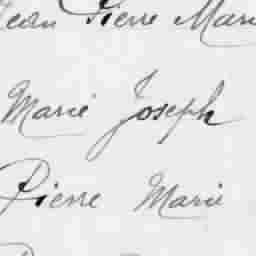 Jean Pierre Marie
Marie Joseph
Pierre Marie